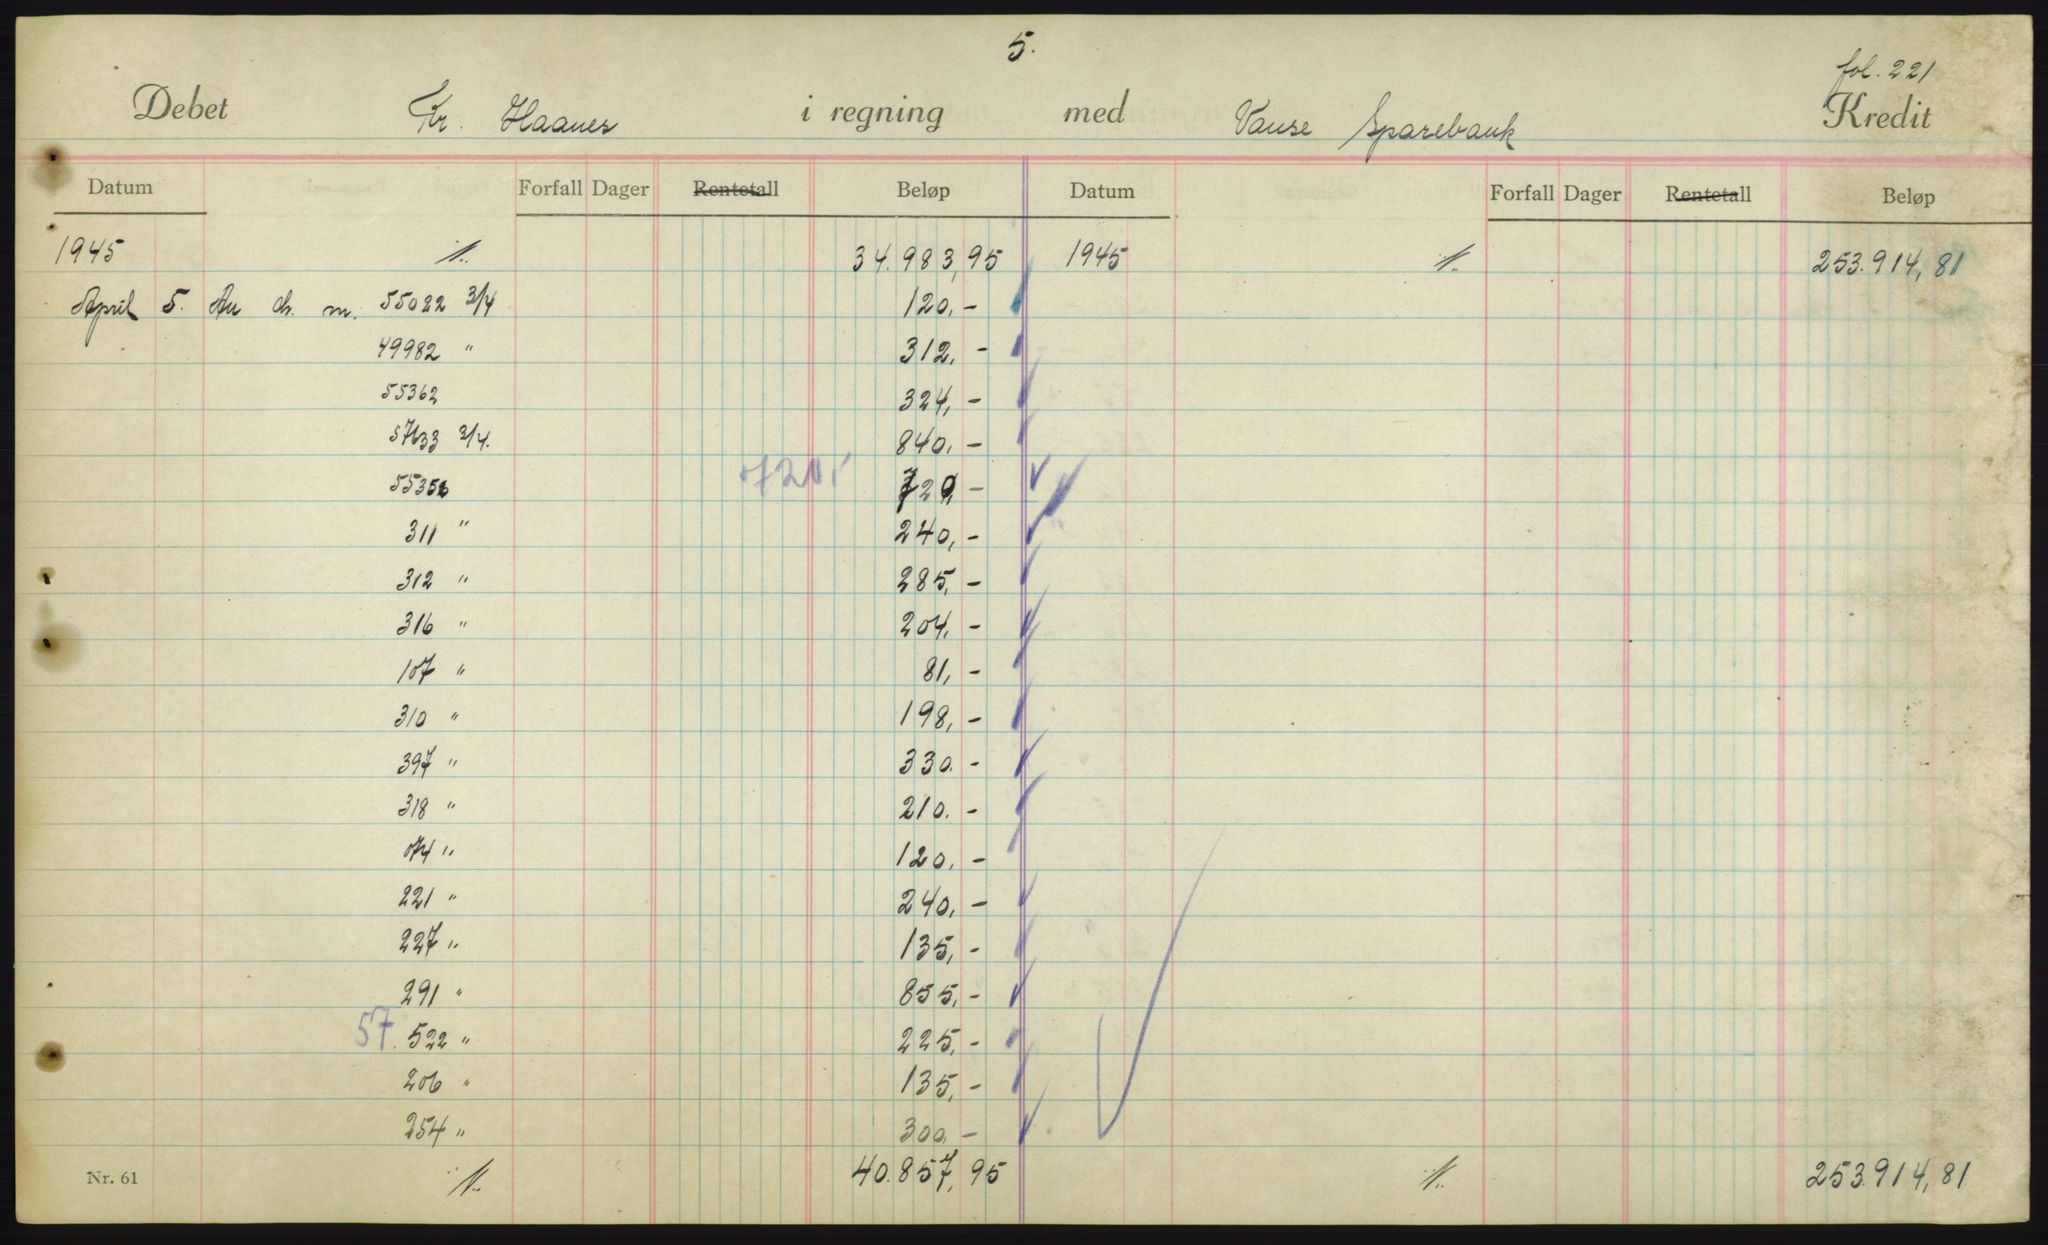 5.
fol. 221
Debet Kr. Haanes i regning med Vanse Sparebank Kredit
Datum Forfall Dager Rentetall Beløp Datum Forfall Dager Rentetall Beløp
1945 ·/.. 34.983,95 1945 ·/.. 253.914,81
April 5. An ch. m. 55022 3/4 120,-
49982 " 312,-
55362 324,-
57633 3/4. 840,-
55356 720,- 720,-
311 " 240,-
312 " 285,-
316 " 204,-
107 " 81,-
310 " 198,-
397 " 330.-
318 " 210.-
074 " 120,-
221 " 240,-
227 " 135,-
291 " 855,-
57. 522 " 225,-
206 " 135,-
254 " 300,-
Nr. 61 ·/.. 40.857,95 ·/.. 253.914,81